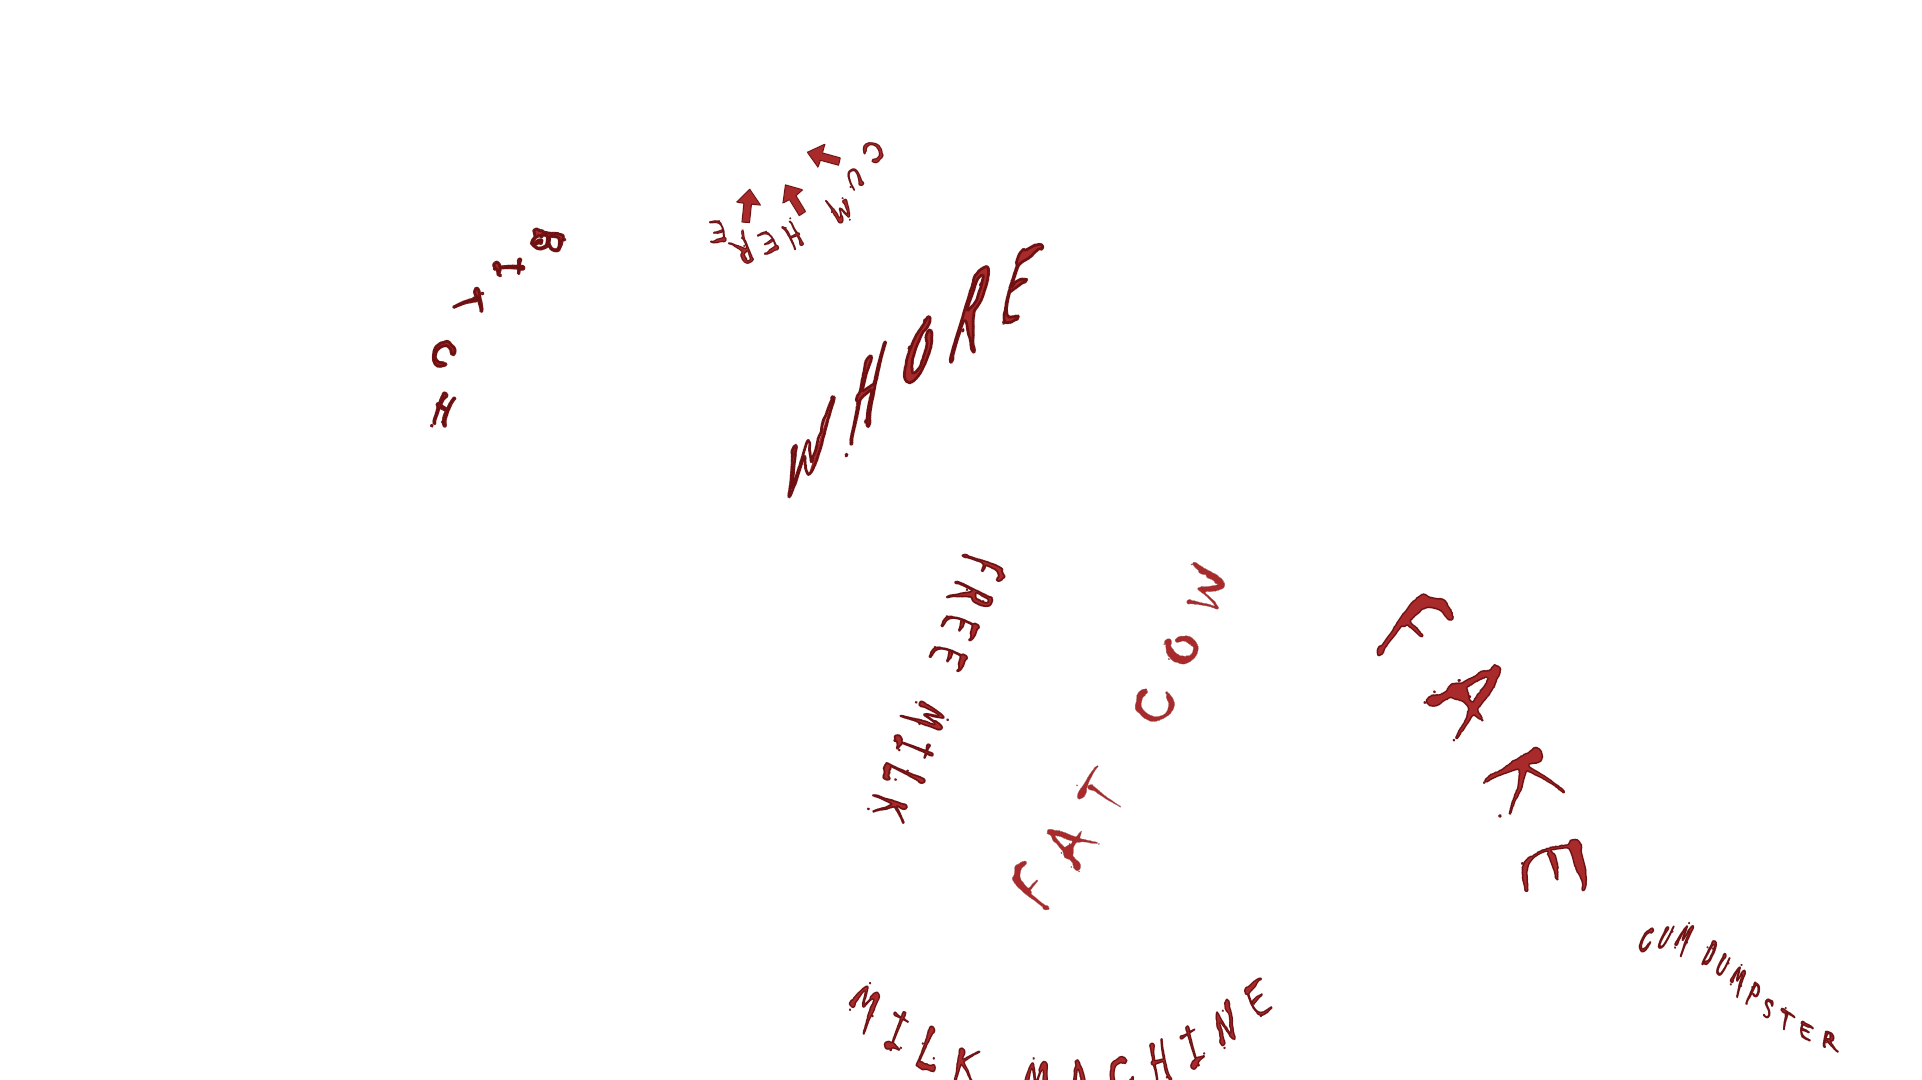 CUM HERE
BITCH
WHORE
FREE MILK
FAT COW
FAKE
CUM DUMPSTER
MILK MACHINE